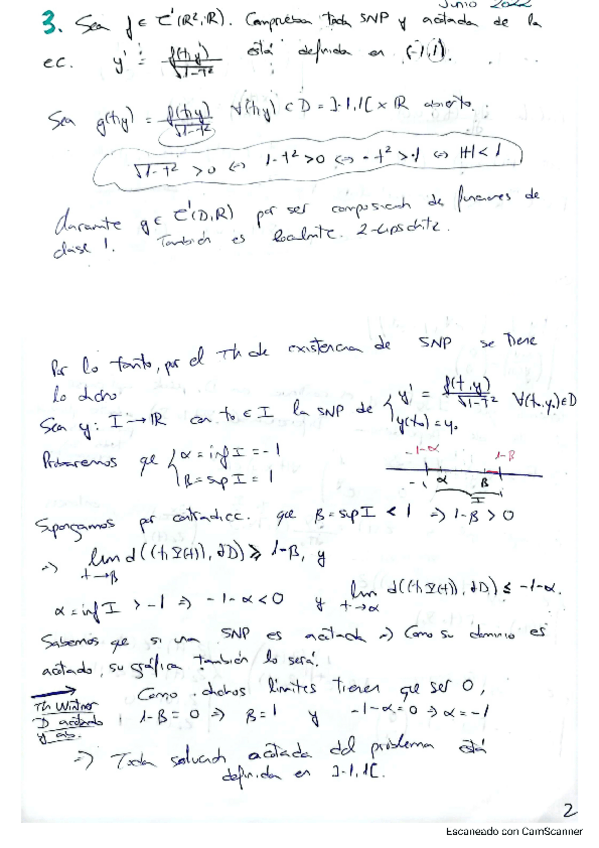 Junio 2022
3. Sea f ∈ C¹(R², R). Comprueba toda SNP y acotada de la
ec. y' = f(t,y)/√(1-t²) está definida en (-1,1).
Sea g(t,y) = f(t,y)/√(1-t²) ∀(t,y) ∈ D = ]-1,1[ x R abierto.
√(1-t²) > 0 ⇔ 1-t² > 0 ⇔ -t² > -1 ⇔ |t| < 1
claramente g ∈ C¹(D,R) por ser composición de funciones de
clase 1. También es localmte. 2-lipschitz.
Por lo tanto, por el Th de existencia de SNP se tiene
lo dicho
Sea y: I → R con t₀ ∈ I la SNP de { y' = f(t,y)/√(1-t²) ∀(t₀,y₀) ∈ D
y(t₀) = y₀
Probaremos que { α = inf I = -1
β = sup I = 1
-1-α 1-β
-1 α β
I
Supongamos por contradicc. que β = sup I < 1 ⇒ 1-β > 0
⇒ lim t→β d((t, Φ(t)), ∂D) ≥ 1-β, y
α = inf I > -1 ⇒ -1-α < 0 y lim t→α d((t, Φ(t)), ∂D) ≤ -1-α.
Sabemos que si una SNP es acotada ⇒ Como su dominio es
acotado, su gráfica también lo será.
Th Wintner
D acotado
y ab.
Como dichos límites tienen que ser 0,
1-β = 0 ⇒ β = 1 y -1-α = 0 ⇒ α = -1
⇒ Toda solución acotada del problema está
definida en ]-1,1[.
2
Escaneado con CamScanner